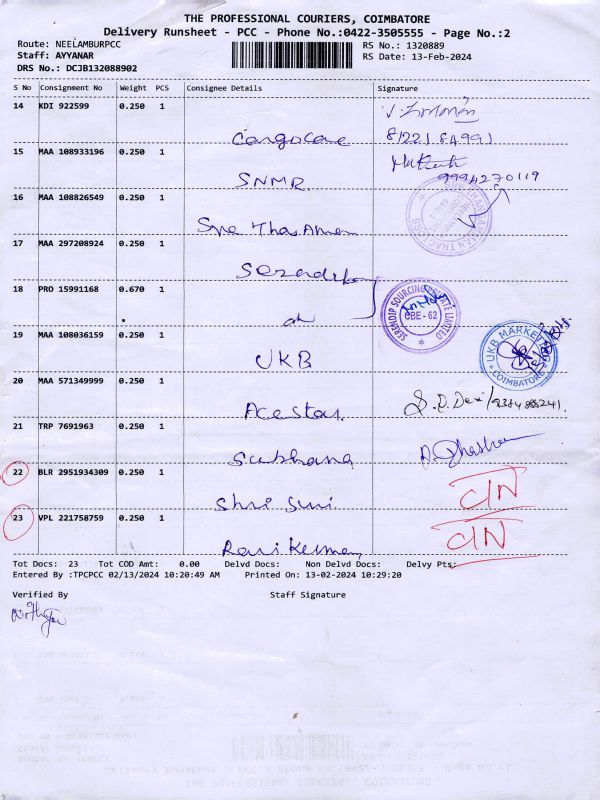 THE PROFESSIONAL COURIERS, COIMBATORE
Delivery Runsheet - PCC - Phone No.:0422-3505555 - Page No.:2
Route: NEELAMBURPCC RS No.: 1320889
Staff: AYYANAR RS Date: 13-Feb-2024
DRS No.: DCJB132088902
S No Consignment No Weight PCS Consignee Details Signature
14 KDI 922599 0.250 1
Cargocare 8122184991
15 MAA 108933196 0.250 1
SNMR 9994270119
16 MAA 108826549 0.250 1
Sre
17 MAA 297208924 0.250 1
18 PRO 15991168 0.670 1
SERENDIP SOURCING PRIVATE LIMITED
CBE - 62
19 MAA 108036159 0.250 1
UKB
UKB MARKETING
COIMBATORE
20 MAA 571349999 0.250 1
Acestar.
21 TRP 7691963 0.250 1
Subhana
22 BLR 2951934309 0.250 1
Shri Suri. C/N
23 VPL 221758759 0.250 1
Ravi Kumar C/N
Tot Docs: 23 Tot COD Amt: 0.00 Delvd Docs: Non Delvd Docs: Delvy Pts:
Entered By :TPCPCC 02/13/2024 10:20:49 AM Printed On: 13-02-2024 10:29:20
Verified By Staff Signature